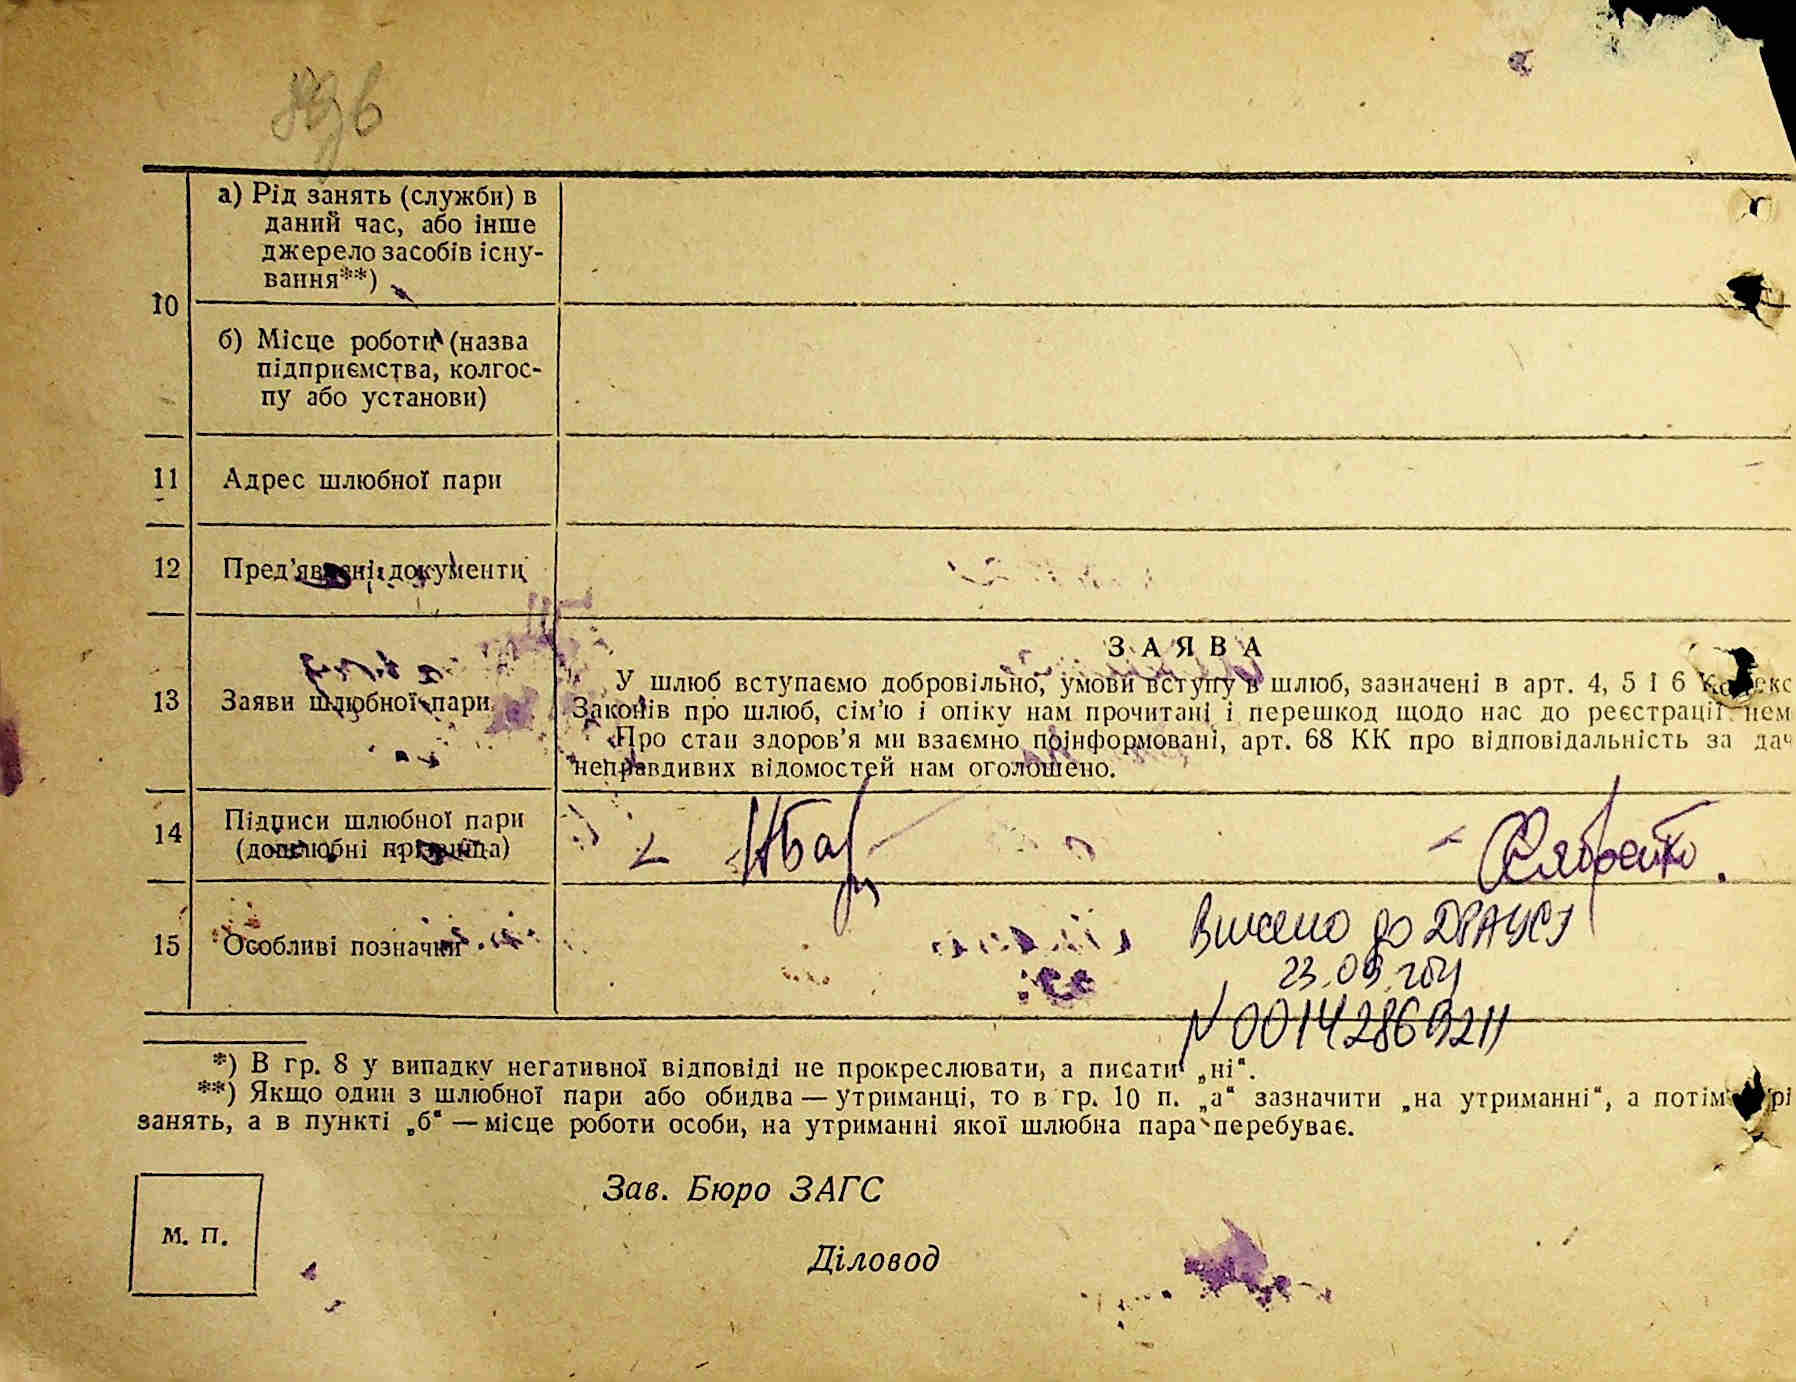 10
а) Рід занять (служби) в
даний час, або інше
джерело засобів існу-
вання**)
б) Місце роботи (назва
підприємства, колгос-
пу або установи)
11 Адрес шлюбної пари
12 Пред’явлені документи
13 Заяви шлюбної пари
ЗАЯВА
У шлюб вступаємо добровільно, умови вступу в шлюб, зазначені в арт. 4, 5 і 6
Законів про шлюб, сім’ю і опіку нам прочитані і перешкод щодо нас до реєстрації нем
Про стан здоров’я ми взаємно поінформовані, арт. 68 КК про відповідальність за дач
неправдивих відомостей нам оголошено.
14 Підписи шлюбної пари
(дошлюбні прізвища)
15 Особливі позначки
Внесено до ДРАЦСГ
23.09.
N 00142869211
*) В гр. 8 у випадку негативної відповіді не прокреслювати, а писати „ні“.
**) Якщо один з шлюбної пари або обидва — утриманці, то в гр. 10 п. „а“ зазначити „на утриманні“, а потім рі
занять, а в пункті „б“ — місце роботи особи, на утриманні якої шлюбна пара перебуває.
М. П.
Зав. Бюро ЗАГС
Діловод